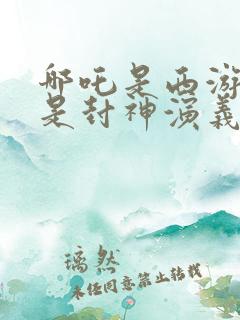 哪吒是西游
是封神演義
璃然
未经同意禁止转载